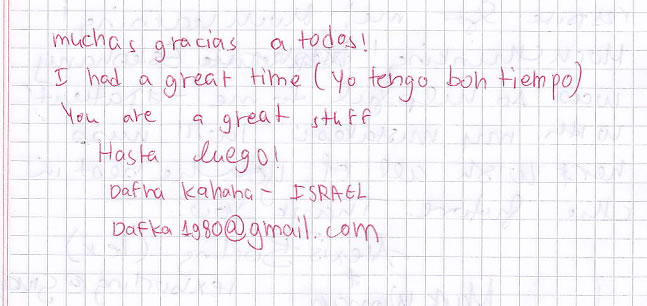 muchas gracias a todos!
I had a great time (Yo tengo bon tiempo)
You are a great stuff
Hasta luego!
Dafna kahana - ISRAEL
Dafka1980@gmail.com